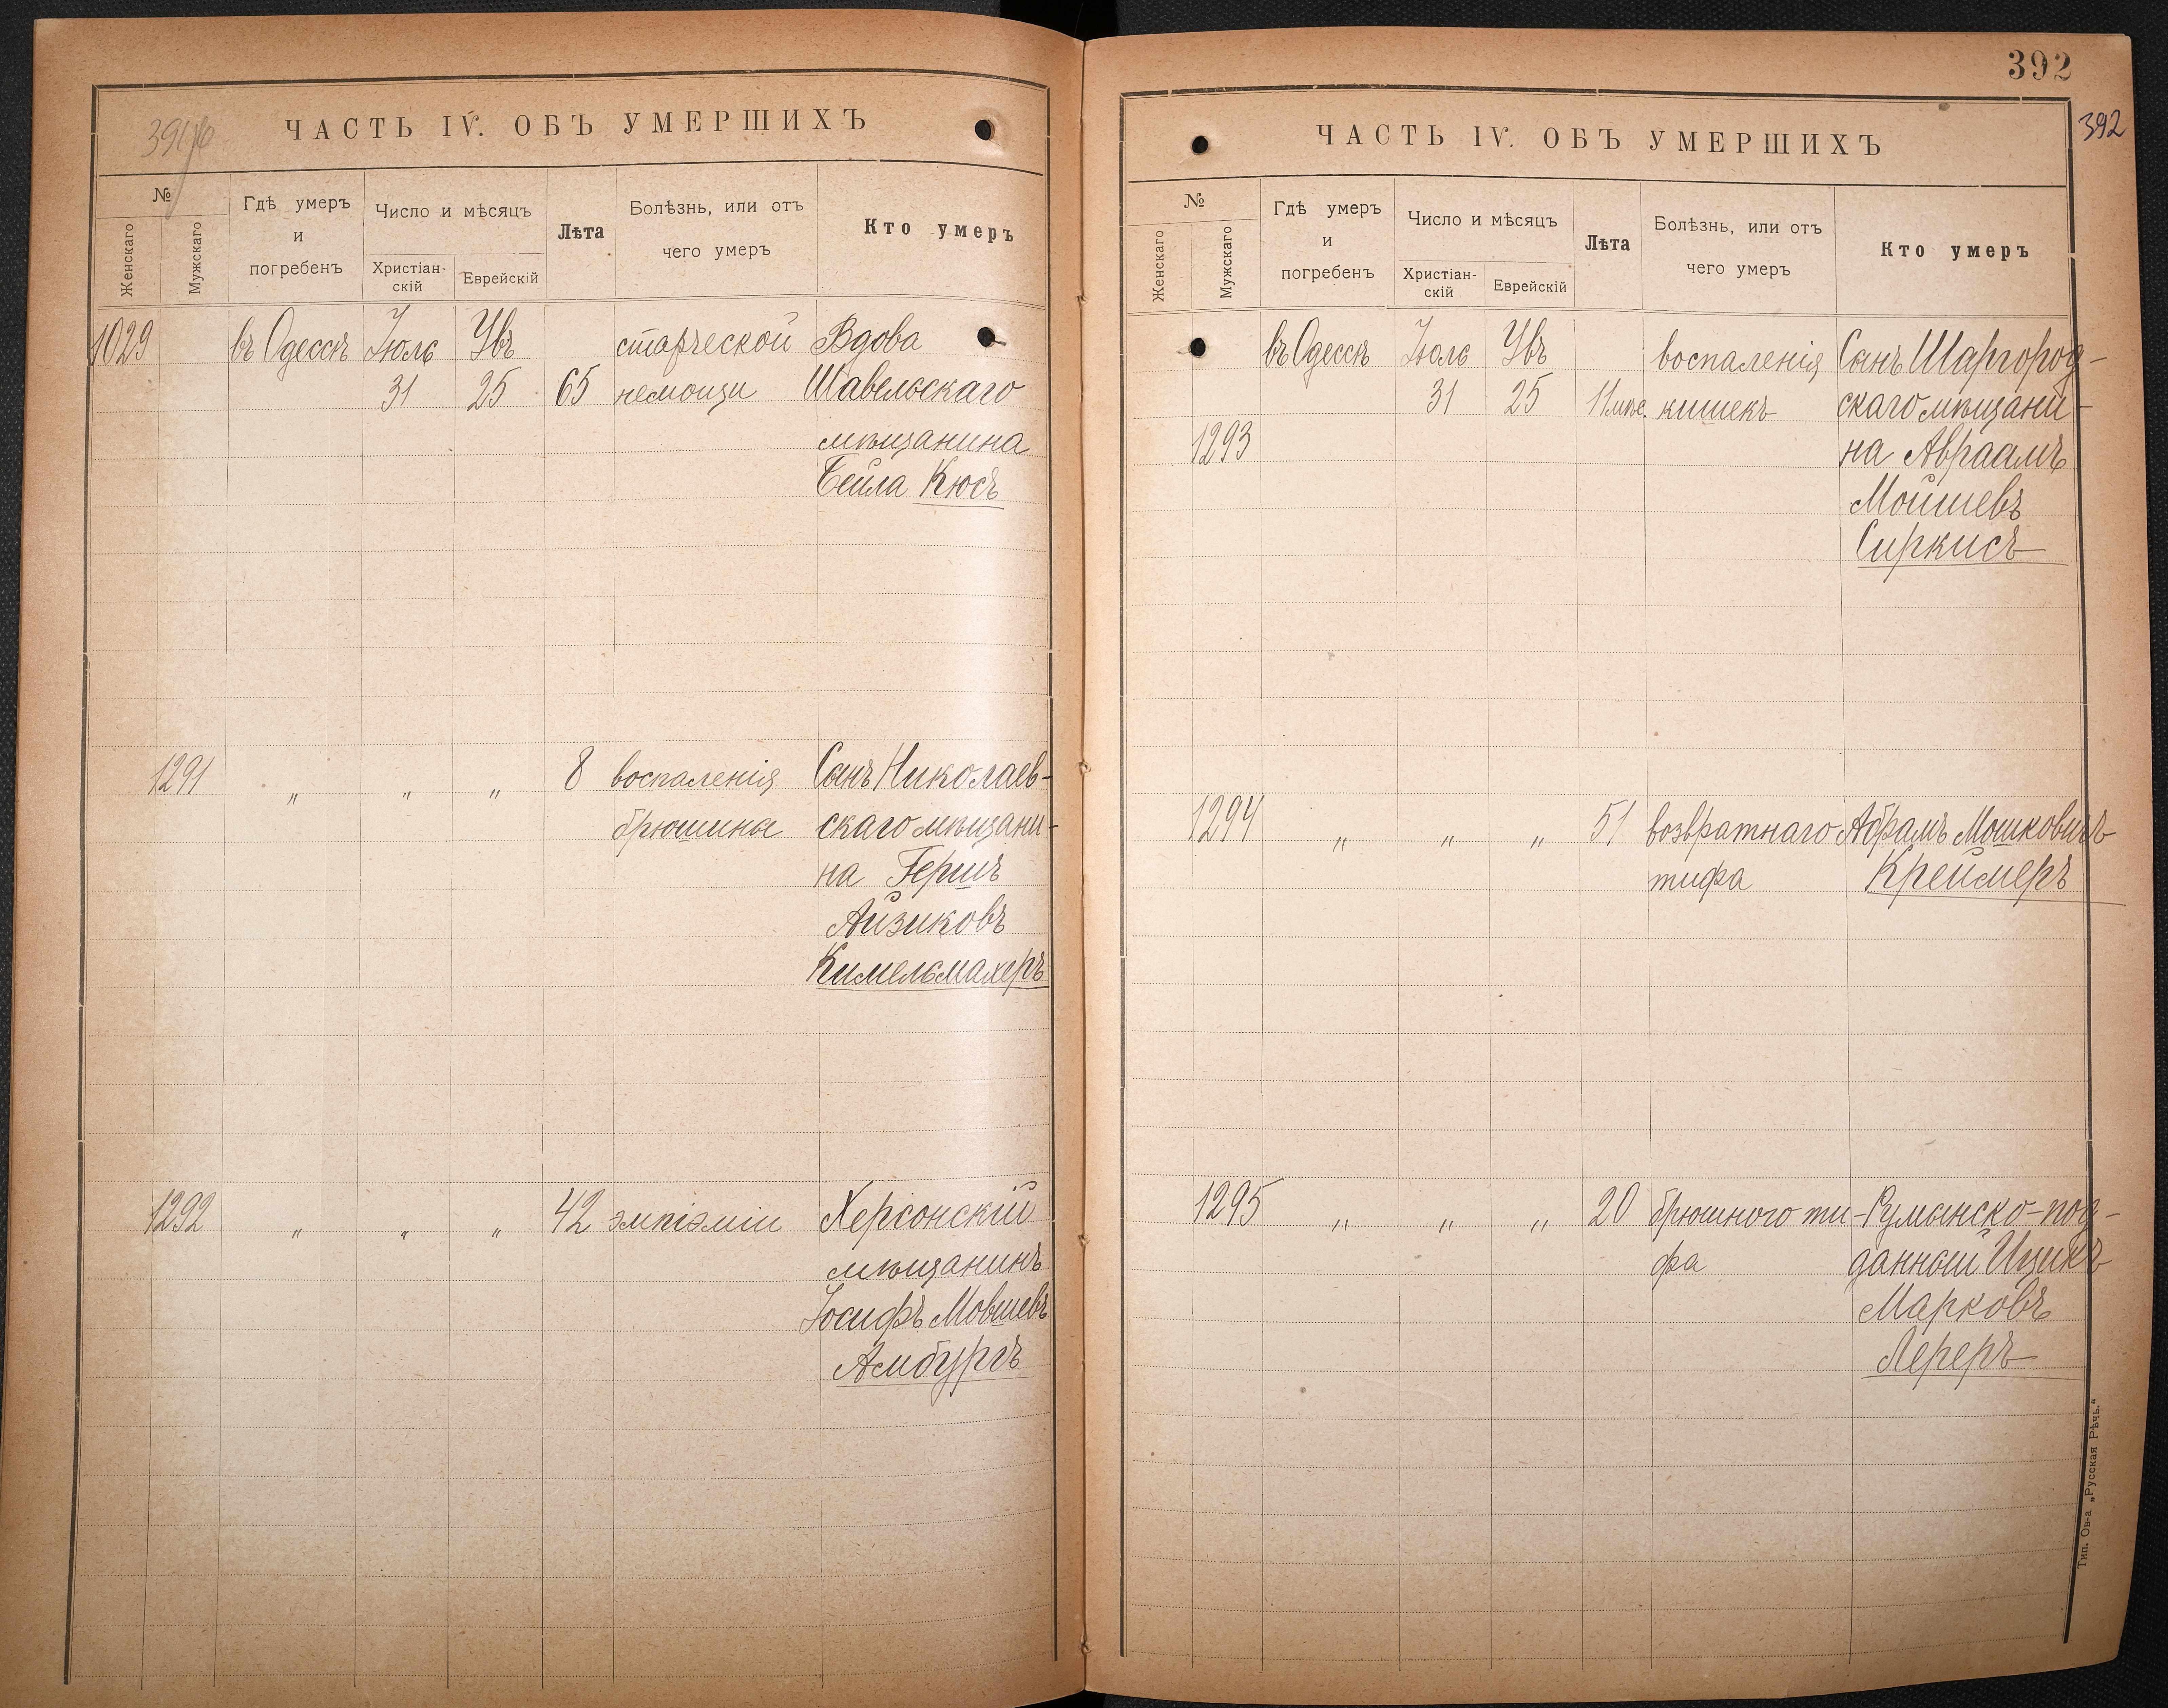 391об
ЧАСТЬ IV. ОБЪ УМЕРШИХЪ
№
Женскаго
Мужскаго
Гдѣ умеръ
и
погребенъ
Число и мѣсяцъ
Христіан-
скій
Еврейскій
Лѣта
Болѣзнь, или отъ
чего умеръ
Кто умеръ
1029 въ Одессѣ Іюль Увъ старческой Вдова
31 25 65 немощи Шавельскаго
мѣщанина
Бейла Кюсъ
1291 „ „ „ 8 воспаленія Сынъ Николаев-
брюшины скаго мѣщани-
на Гершъ
Айзиковъ
Кимельмахеръ
1292 „ „ „ 42 эмпіэміи Херсонскій
мѣщанинъ
Іосифъ Мовшевъ
Амбургъ
392
392
ЧАСТЬ IV. ОБЪ УМЕРШИХЪ
№
Женскаго
Мужскаго
Гдѣ умеръ
и
погребенъ
Число и мѣсяцъ
Христіан-
скій
Еврейскій
Лѣта
Болѣзнь, или отъ
чего умеръ
Кто умеръ
въ Одессѣ Іюль Увъ воспаленія Сынъ Шаргород-
31 25 11 мѣс. кишекъ скаго мѣщани-
1293 на Авраамъ
Мойшевъ
Сиркисъ
1294 „ „ „ 51 возвратнаго Абрамъ Мошковичъ
тифа Креймеръ
1295 „ „ „ 20 брюшного ти- Румынско-под-
фа данный Ицикъ
Марковъ
Лереръ
Тип. Ов-а „Русская Рѣчь.“